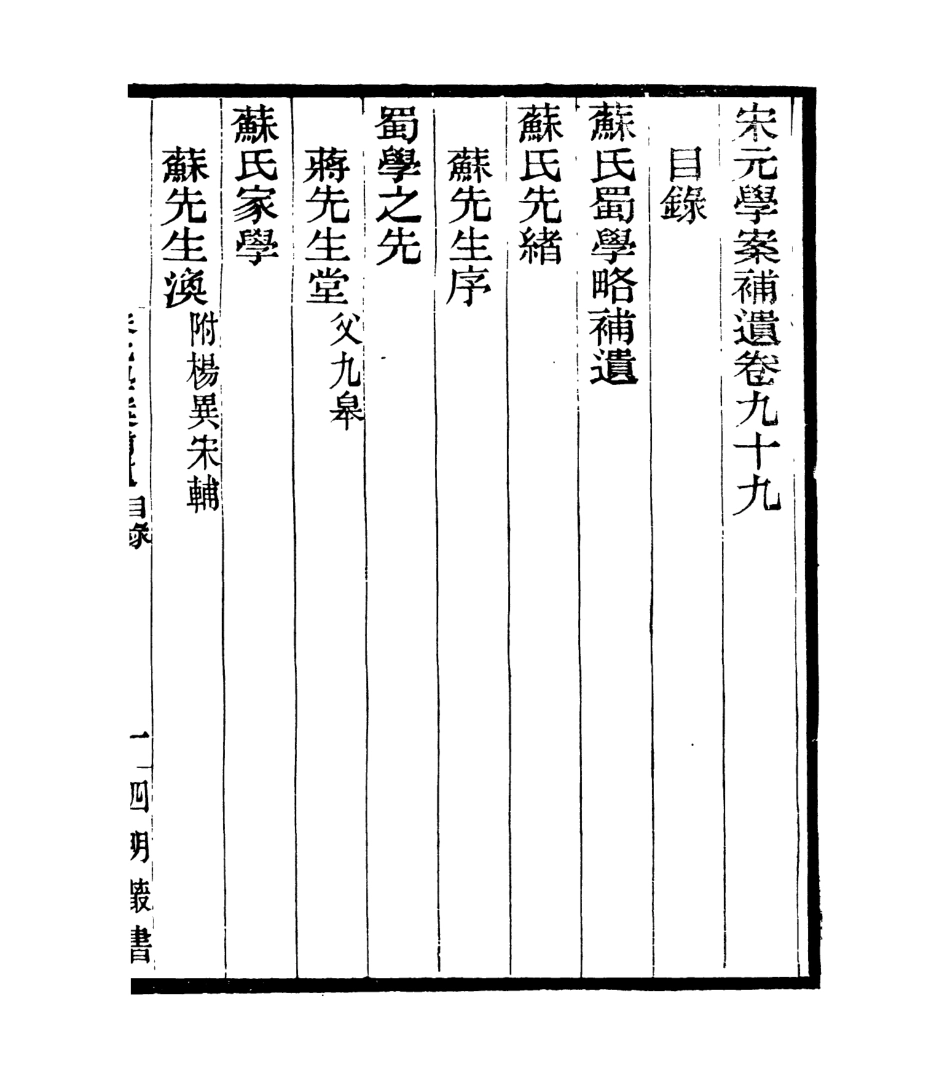 宋元學案補遺卷九十九
目錄
蘇氏蜀學略補遺
蘇氏先緒
蘇先生序
蜀學之先
蔣先生堂 父九皋
蘇氏家學
蘇先生渙 附楊異朱輔
目錄 一 四明叢書